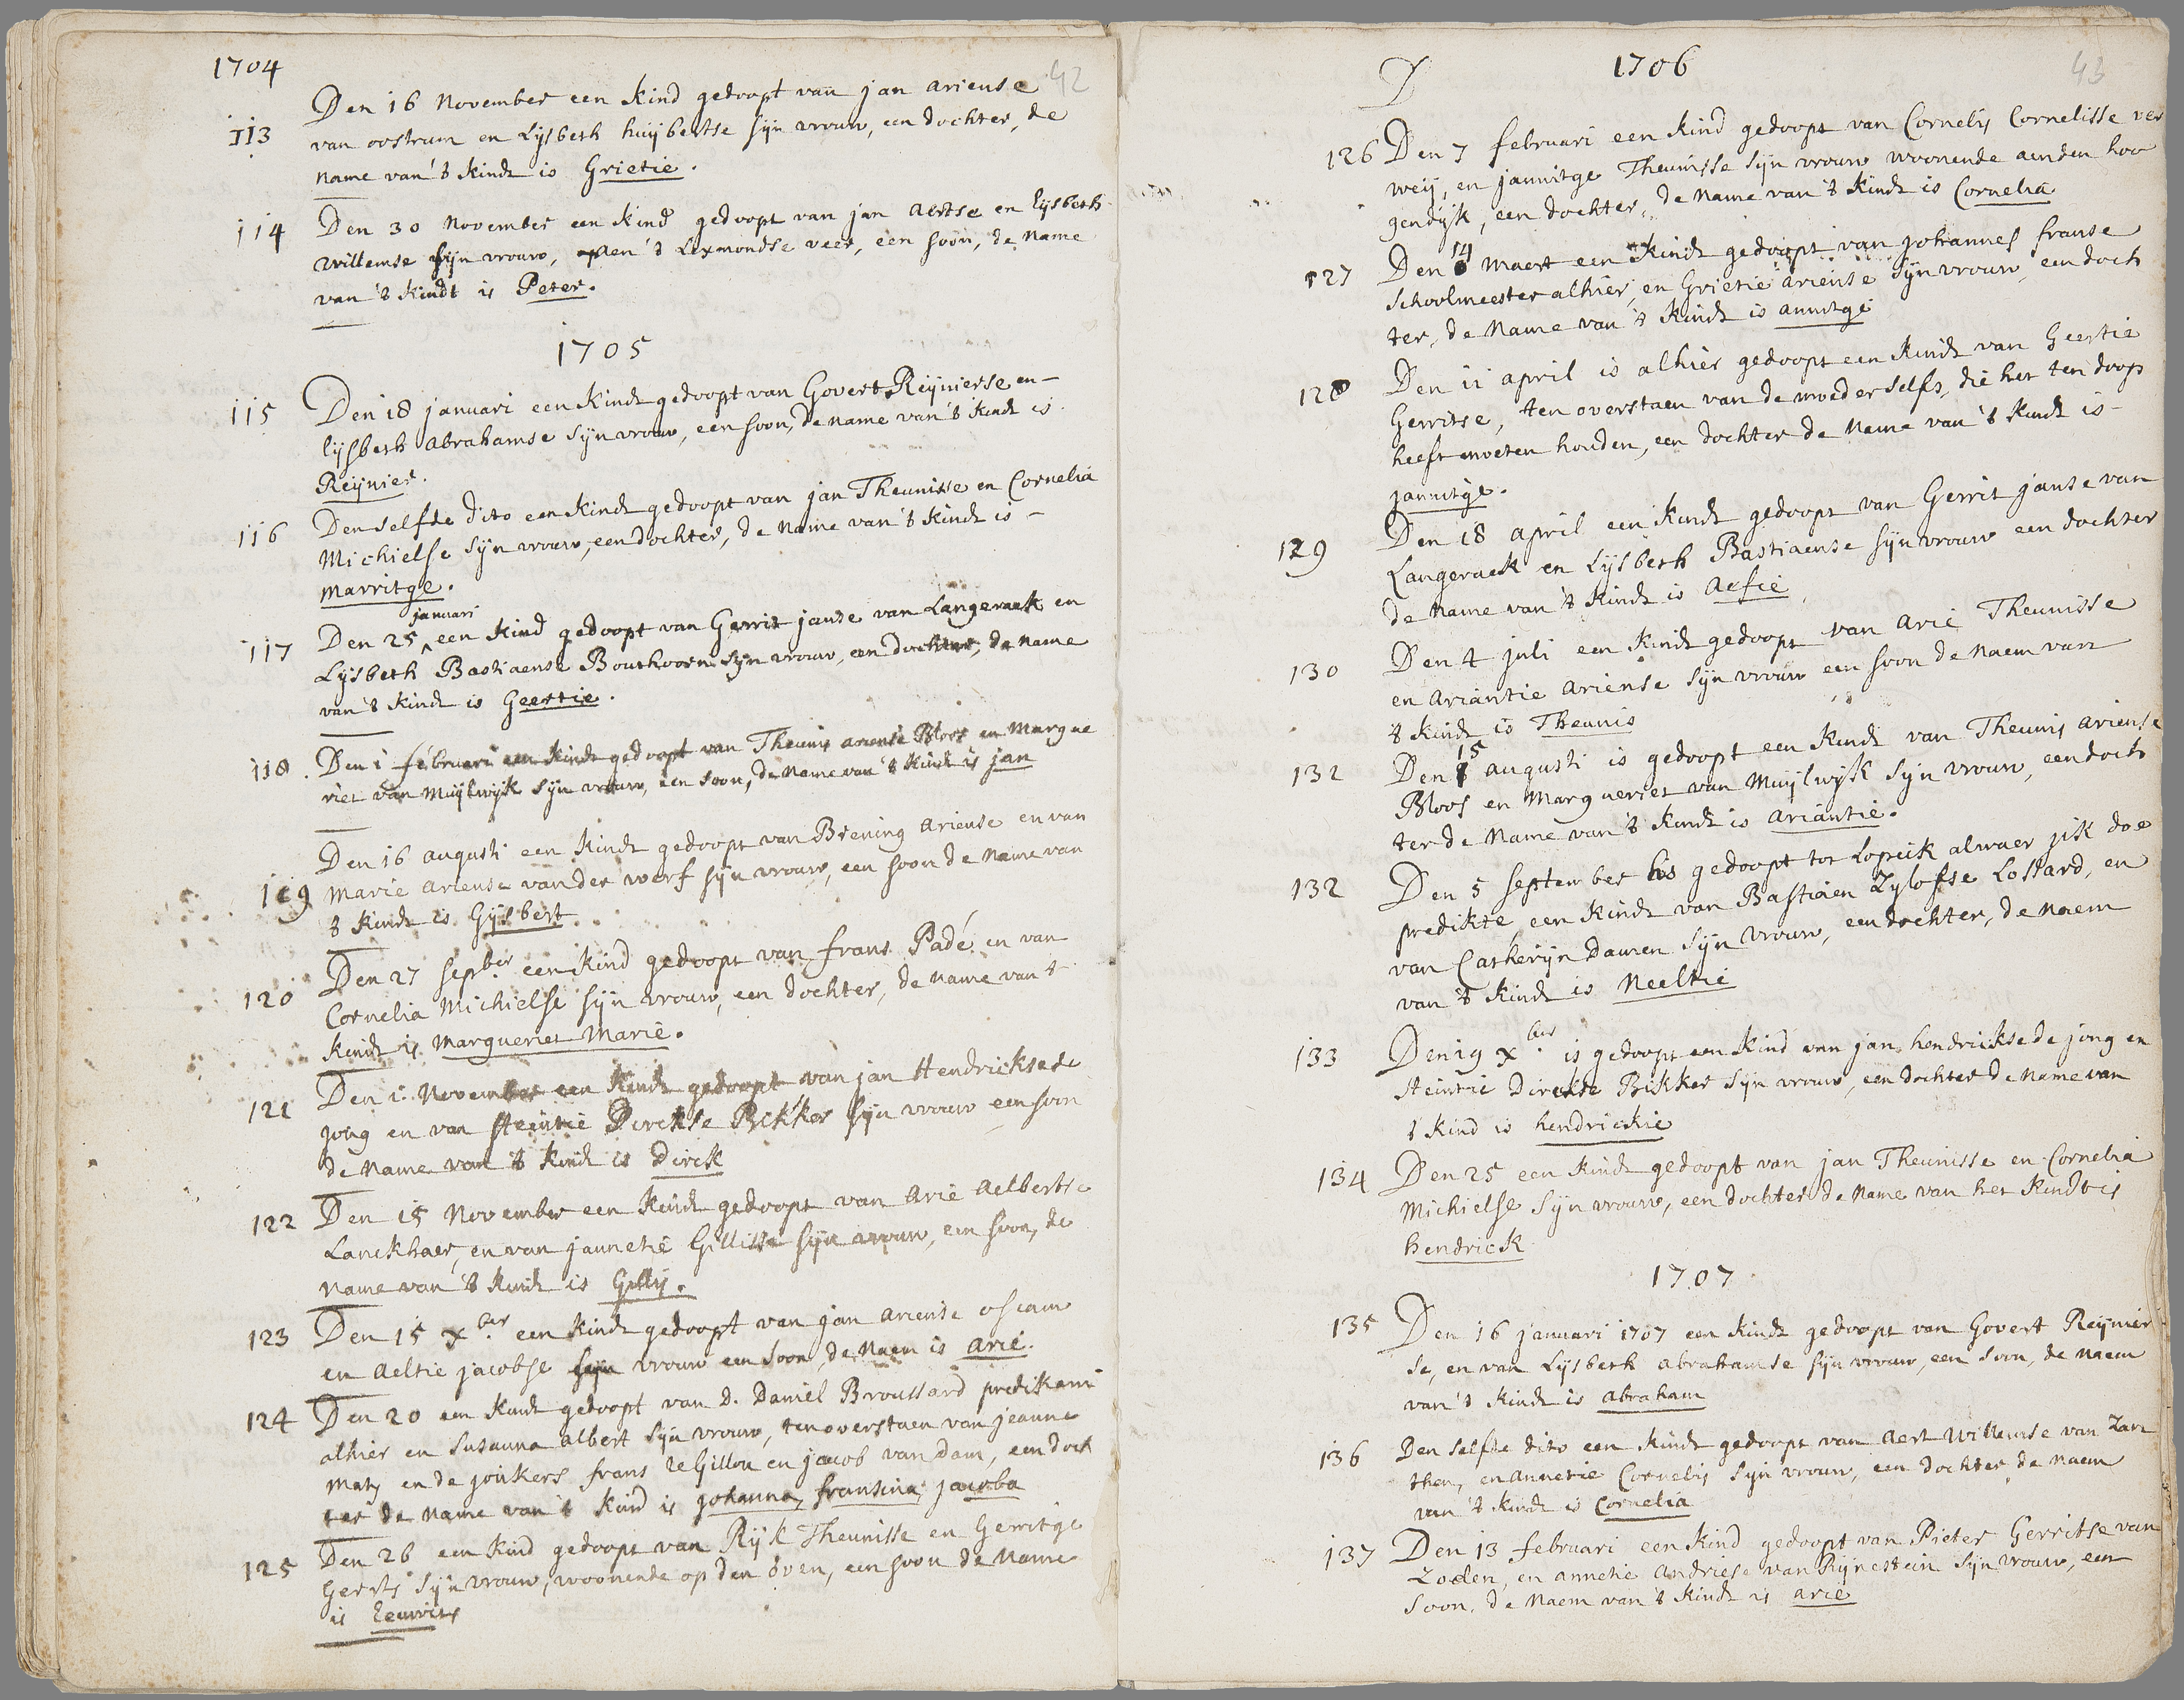 1704
42
Den 16 November een kind gedoopt van jan ariense
113 van oostrum en Lijsbeth huijbertse sijn vrouw, een dochter, de
name van 't kindt is Grietie.
114 Den 30 November een kind gedoopt van jan aertse en lijsbeth
willemse sijn vrouw, aen 't Lexmondse veer, een soon, de name
van 't kindt is Peter.
1705
115 Den 18 januari een kindt gedoopt van Govert Reijnierse en-
lijsbeth abrahamse sijn vrouw, een soon, de name van 't kindt is
Reijnier.
116 Den selfde dito een kindt gedoopt van jan Theunisse en Cornelia
Michielse sijn vrouw, een dochter, de name van 't kindt is -
marritge.
januari
117 Den 25 ^ een kind gedoopt van Gerrit janse van Langeraek en
Lijsbeth Bastiaense Bouthoorn sijn vrouw, een dochter, de name
van 't kindt is Geertie.
118. Den 1 februari een kindt gedoopt van Theunis ariense Bloos en Margue
riet van Muijlwijk sijn vrouw, een soon, de name van 't kindt is jan
Den 16 augusti een kindt gedoopt van Brening ariense en van
119 marie ariense van der werf sijn vrouw, een soon de name van
't kindt is Gijsbert.
120 Den 27 sepber een kind gedoopt van frans Padé en van
Cornelia Michielse sijn vrouw, een dochter, de name van 't
kindt is Margueriet Marie.
121 Den 1. November een kindt gedoopt van jan Hendrickse de
jong en van steintie Dirckse Bikker sijn vrouw een soon
de name van 't kindt is Dirck
122 Den 15 November een kindt gedoopt van Arie Aelbertse
Lanckhaer, en van jannetie Gillisse sijn vrouw, een soon, de
name van 't kindt is Gillis.
123 Den 15 xber een kindt gedoopt van jan ariense oscam
en Aeltie jacobse sijn vrouw een soon, de naem is arie.
124 Den 20 een kindt gedoopt van D. Daniel Broussard predikant
alhier en Susanna albert sijn vrouw, ten overstaen van jeanne
Maty en de jonkers frans leGillon en jacob van Dam, een doch
ter de name van 't kind is johanna, fransina, jacoba
125 Den 26 een kind gedoopt van Rijk Theunisse en Gerritge
Geerts sijn vrouw, woonende op den oven, een soon de name
is leuwris
D
1706
43
126 Den 7 februari een kind gedoopt van Cornelis Cornelisse ver
weij, en jannitge Theunisse sijn vrouw woonende aen den hoo
gendijk, een dochter, de name van 't kindt is Cornelia
127 Den 14 Maert een kindt gedoopt van johannes franse
Schoolmeester alhier, en Grietie ariense sijn vrouw, een doch
ter, de name van 't kindt is annitge
128 Den 11 april is alhier gedoopt een kindt van Geertie
Gerritse, ten overstaen van de moeder selfs, die het ten doop
heeft moeten houden, een dochter de name van 't kindt is -
jannitge.
129 Den 18 april een kindt gedoopt van Gerrit janse van
Langeraek en Lijsbeth Bastiaense sijn vrouw een dochter
de name van 't kindt is aefie
130 Den 4 juli een kindt gedoopt van Arie Theunisse
en ariantie ariense sijn vrouw een soon de naem van
't kindt is Theunis
132 Den 15 augusti is gedoopt een kindt van Theunis ariense
Bloos en Margueriet van Muijlwijk sijn vrouw, een doch
ter de name van 't kindt is ariantie.
132 Den 5 september is gedoopt tot Lopick alwaer jik doe
predikte, een kindt van Bastiaen Zylofse Lostard, en
van Catherijn Damen sijn vrouw, een dochter, de naem
van 't kindt is Neeltie
133 Den 19 xber is gedoopt een kind van jan hendrickse de jong en
steintie Dirckse Bikker sijn vrouw, een dochter de name van
't kind is hendrickie
134 Den 25 een kindt gedoopt van jan Theunisse en Cornelia
Michielse sijn vrouw, een dochter de name van het kindt is
hendrick
1707
135 Den 16 januari 1707 een kindt gedoopt van Govert Reijnier
se, en van Lijsbeth abrahamse sijn vrouw, een soon, de naem
van 't kindt is abraham
136 Den selfde dito een kindt gedoopt van Aert Willemse van Zan
then, en annetie Cornelis sijn vrouw, een dochter, de naem
van 't kindt is Cornelia
137 Den 13 februari een kind gedoopt van Pieter Gerritse van
Zoelen, en annetie andriese van Rijnestein sijn vrouw, een
soon, de naem van 't kindt is arie